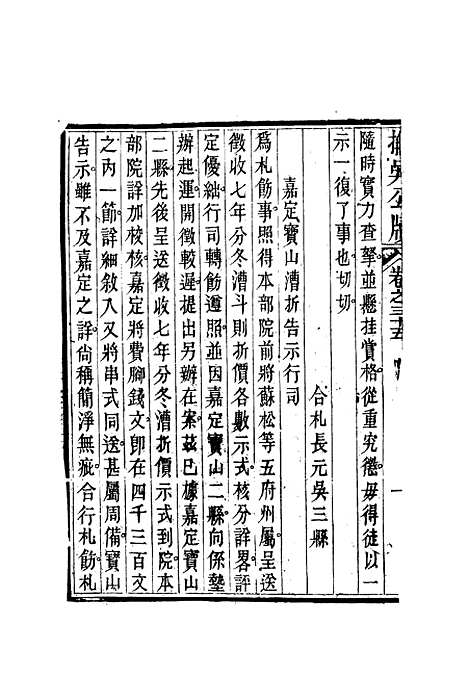 撫吳公牘 卷之三十五 一
隨時實力查拏並懸挂賞格從重究懲毋得徒以一
示一復了事也切切
合札長元吳三縣
嘉定寶山漕折告示行司
爲札飭事照得本部院前將蘇松等五府州屬呈送
徵收七年分冬漕斗則折價各數示式核分詳畧評
定優絀行司轉飭遵照並因嘉定寶山二縣向係墊
辦起運開徵較遲提出另辦在案茲已據嘉定寶山
二縣先後呈送徵收七年分冬漕折價示式到院本
部院詳加核嘉定將費腳錢文卽在四千三百文
之內一節詳細敘入又將串式同送甚屬周備寶山
告示雖不及嘉定之詳尙稱簡淨無疵合行札飭札